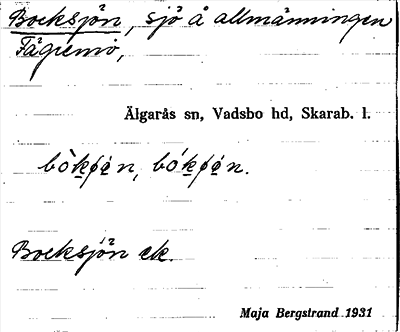 Bocksjön, sjö å allmänningen
Fägremo,
Älgarås sn, Vadsbo hd, Skarab. l.
Bocksjön ek.
Maja Bergstrand 1931